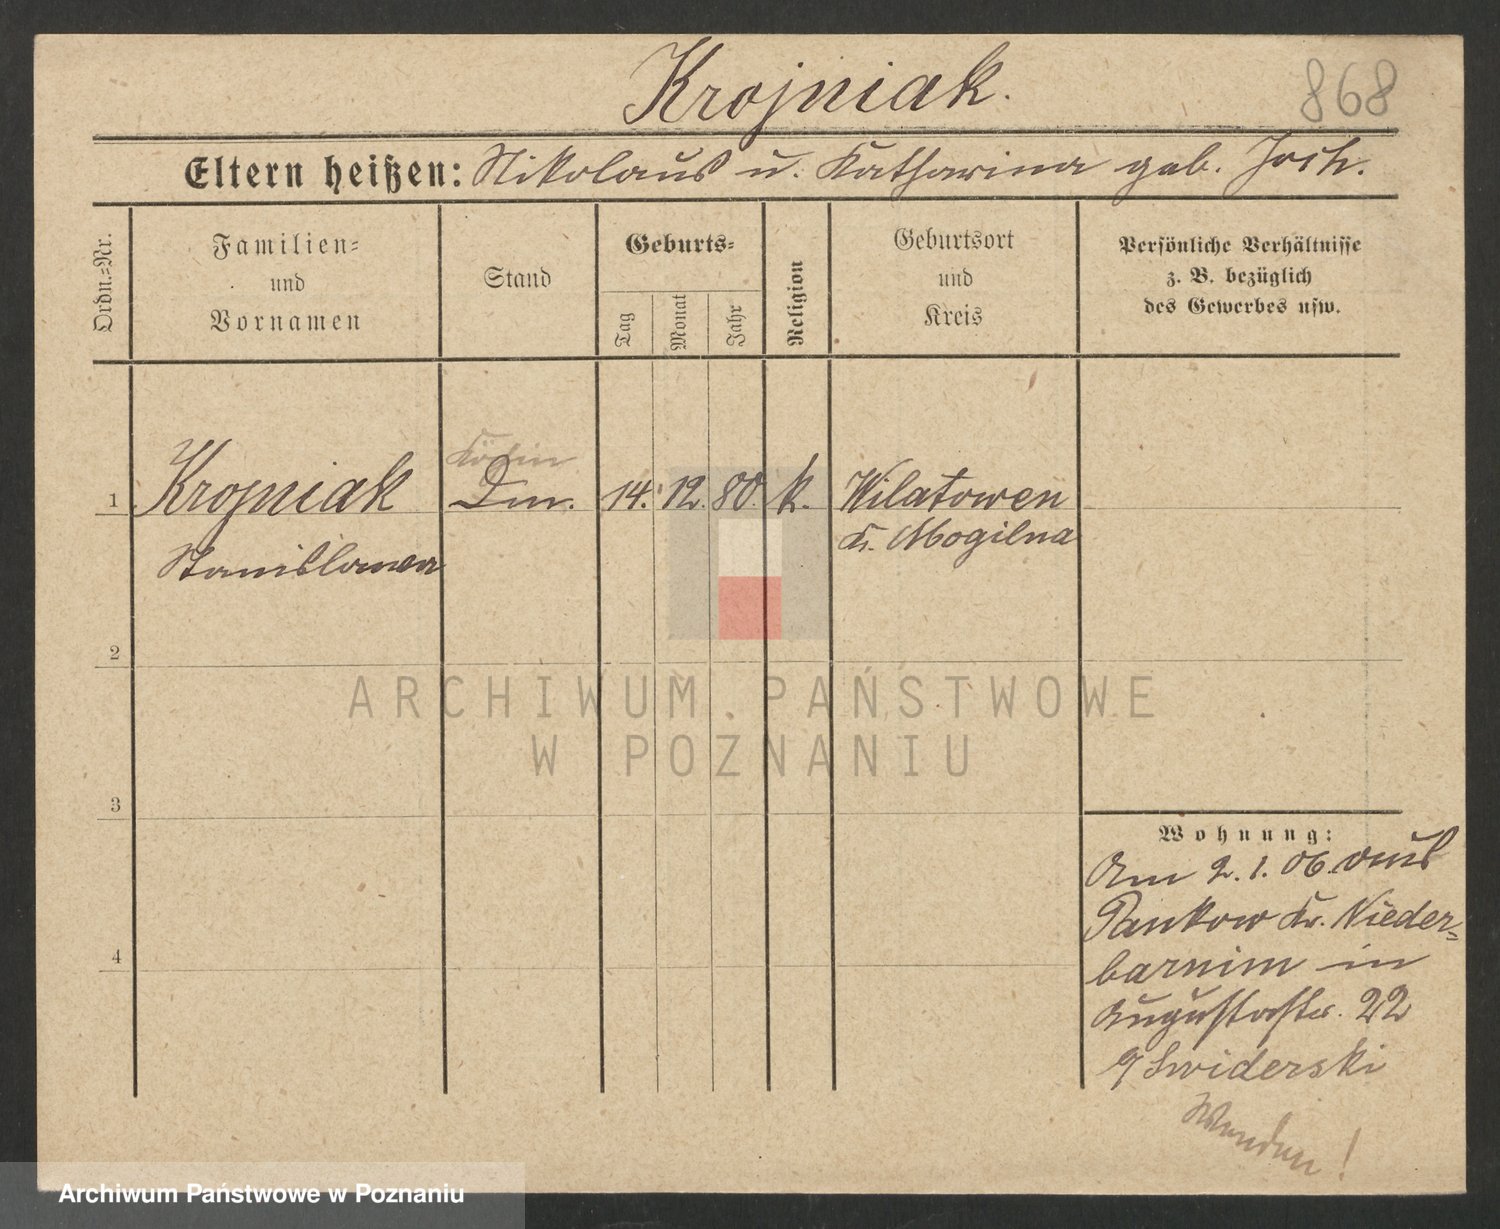 Krojniak.
868
Eltern heißen: Nikolaus u. Katharina geb.
Ordn.-Nr.
Familien-
und
Vornamen
Stand
Geburts-
Tag
Monat
Jahr
Religion
Geburtsort
und
Kreis
Persönliche Verhältnisse
z. B. bezüglich
des Gewerbes usw.
Köchin
1 Krojniak Dm. 14. 12. 80. k. Wilatowen
Stanislawa
Kr. Mogilna
2
3
4
Wohnung:
Am 2. 1. 06. aus
Pankow Kr. Nieder-
barnim in
Augustastr. 22
Swiderski
Wenden!
ARCHIWUM PAŃSTWOWE
W POZNANIU
Archiwum Państwowe w Poznaniu